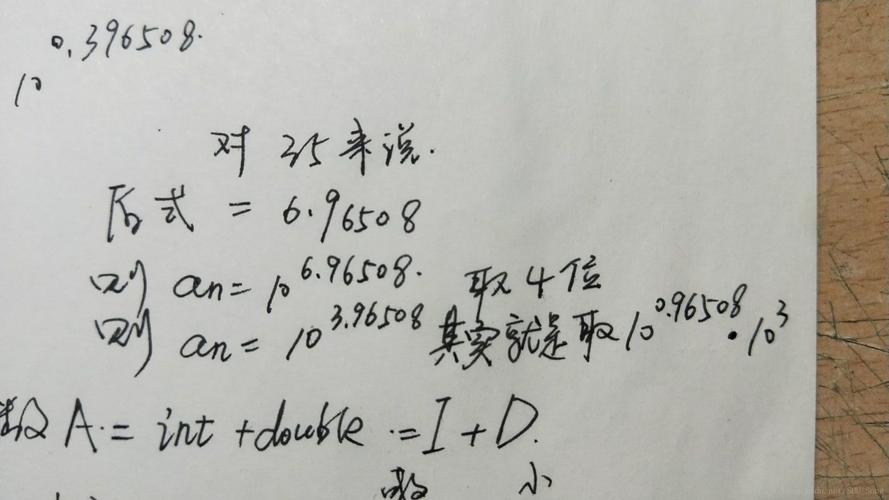 10^0.396508.
对 35 来说.
后式 = 6.96508
则 an = 10^6.96508. 取4位
则 an = 10^3.96508 其实就是取10^0.96508 · 10^3
A = int + double = I + D.
小